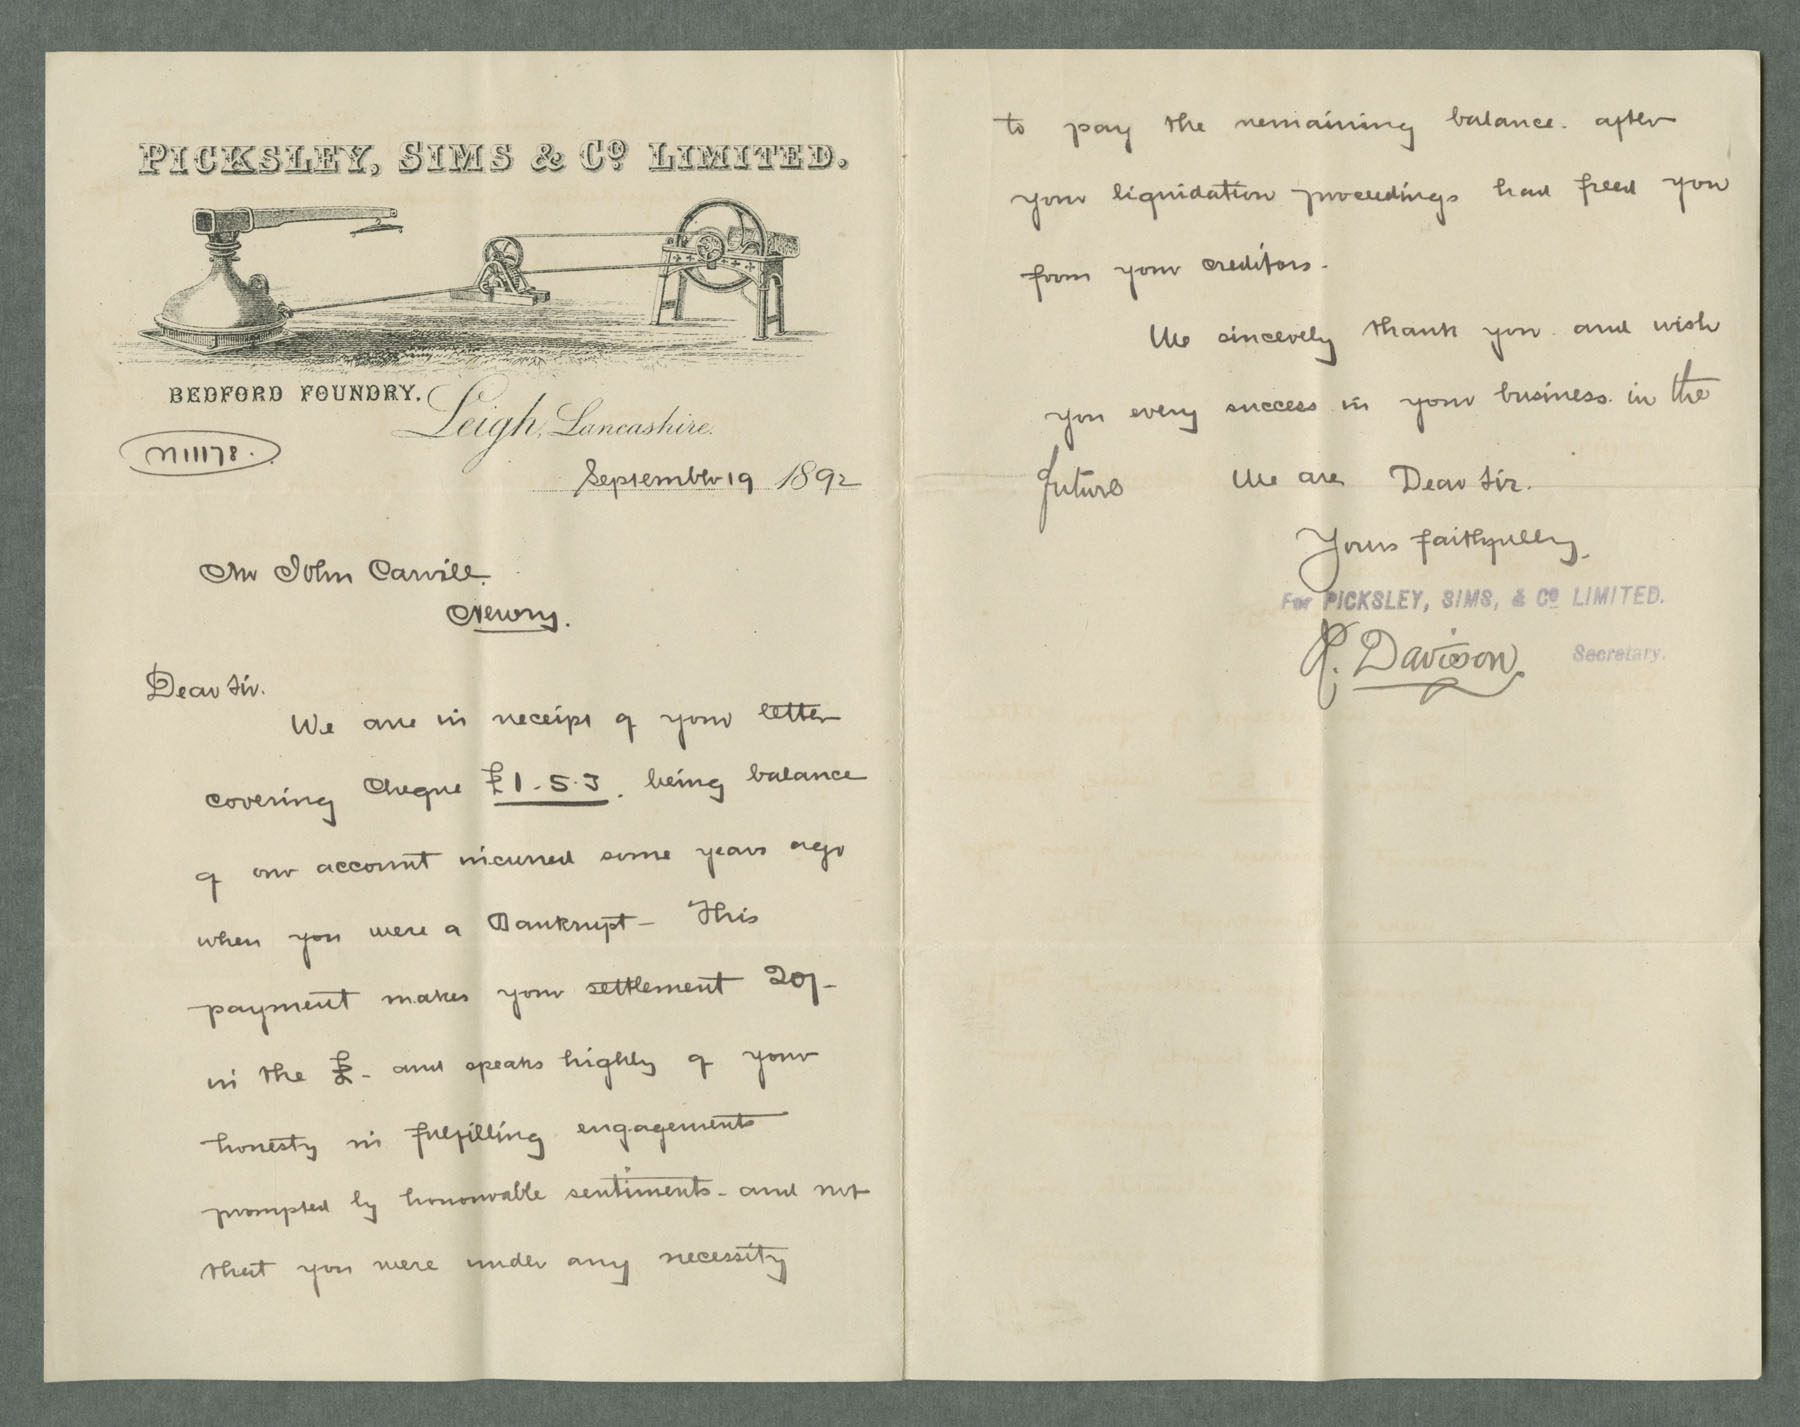 PICKSLEY, SIMS & Co LIMITED.
BEDFORD FOUNDRY. Leigh, Lancashire.
M11178.
September 19 1892
Mr John Carvill.
Newry.
Dear Sir.
We are in receipt of your letter
covering Cheque £1-5-3. being balance
of our account incurred some years ago
when you were a Bankrupt - This
payment makes your settlement 20/-
in the £- and speaks highly of your
honesty in fulfilling engagements
prompted by honourable sentiments - and not
that you were under any necessity
to pay the remaining balance. after
your liquidation proceedings had freed you
from your creditors.
We sincerely thank you and wish
you every success in your business in the
future We are Dear Sir.
Yours faithfully.
For PICKSLEY, SIMS, & Co LIMITED.
Davison Secretary.